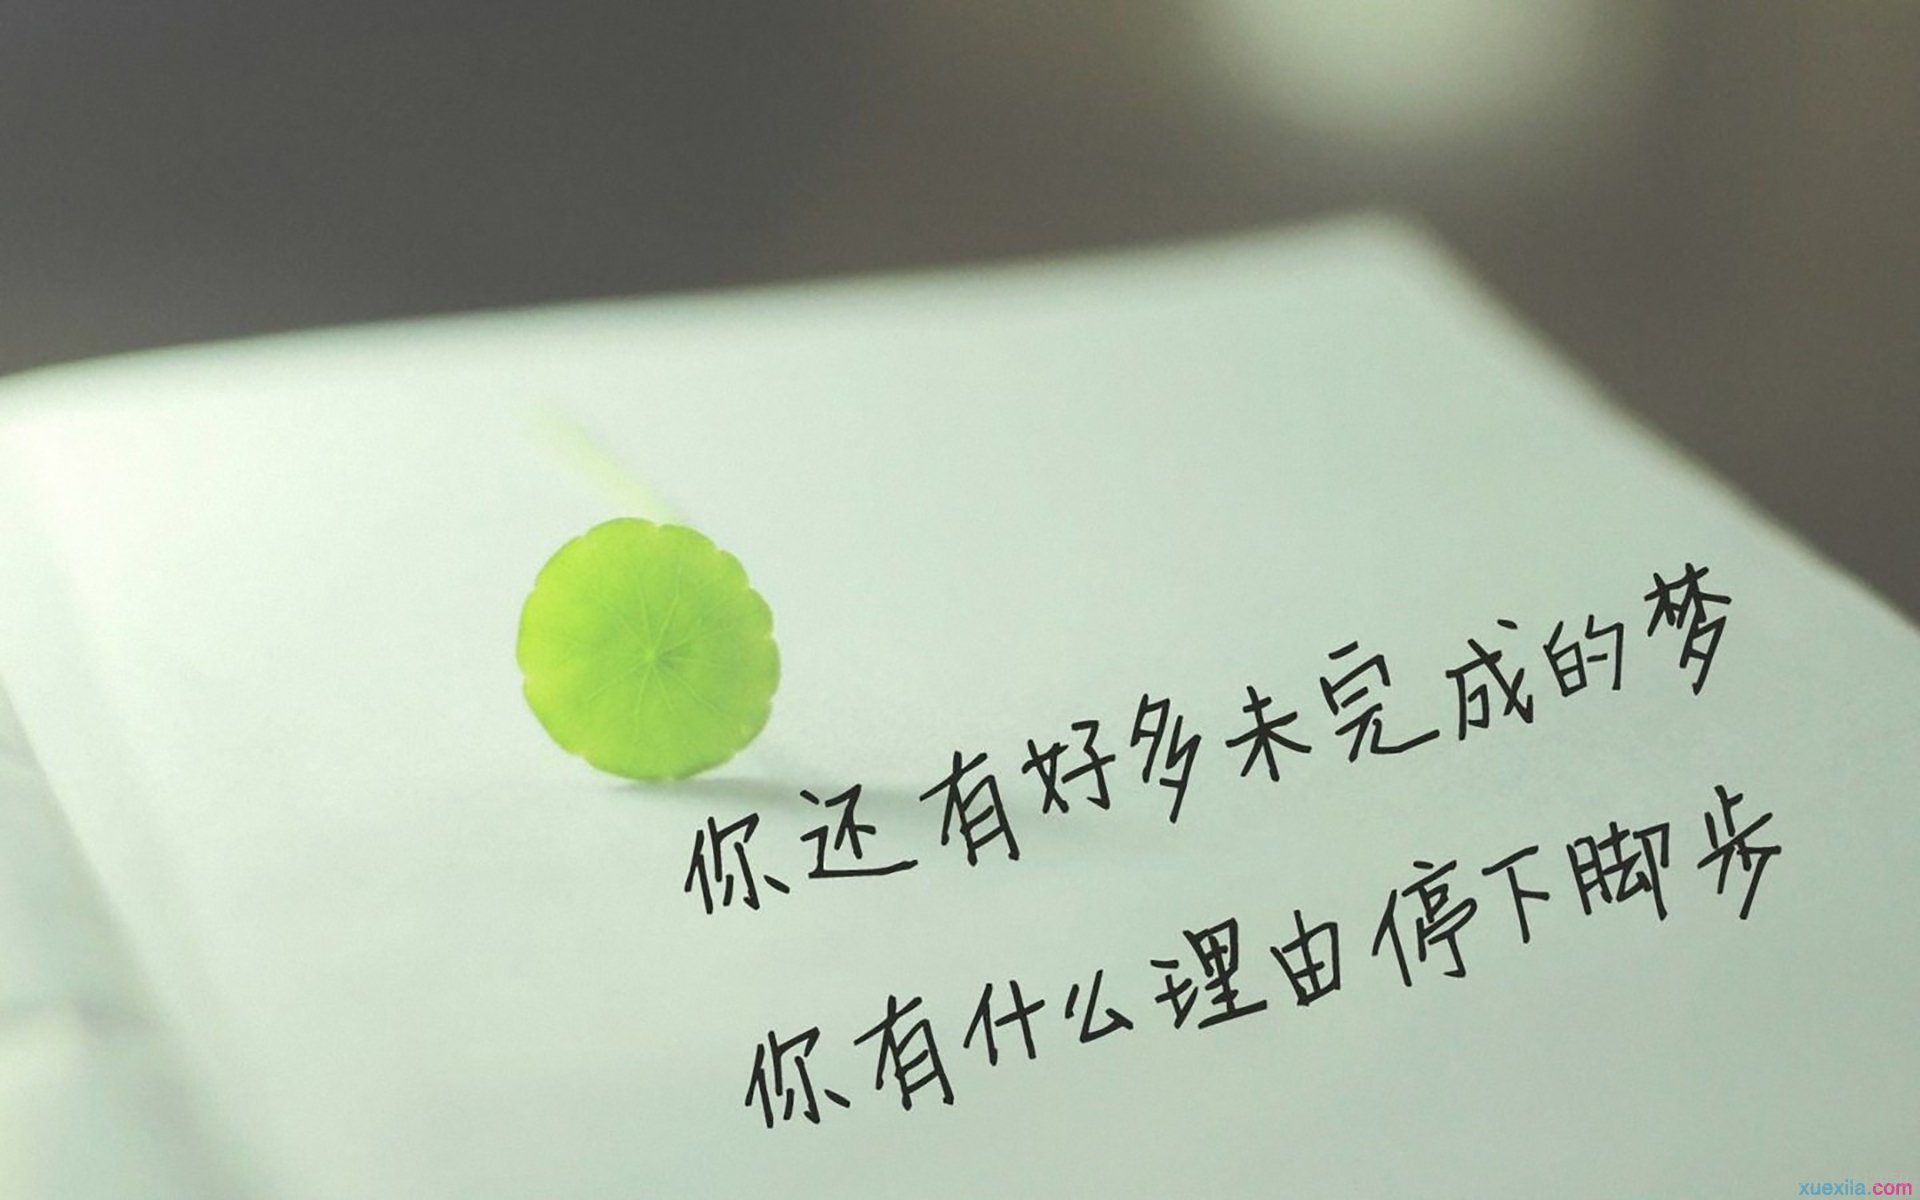 你还有好多未完成的梦
你有什么理由停下脚步
xuexila.com